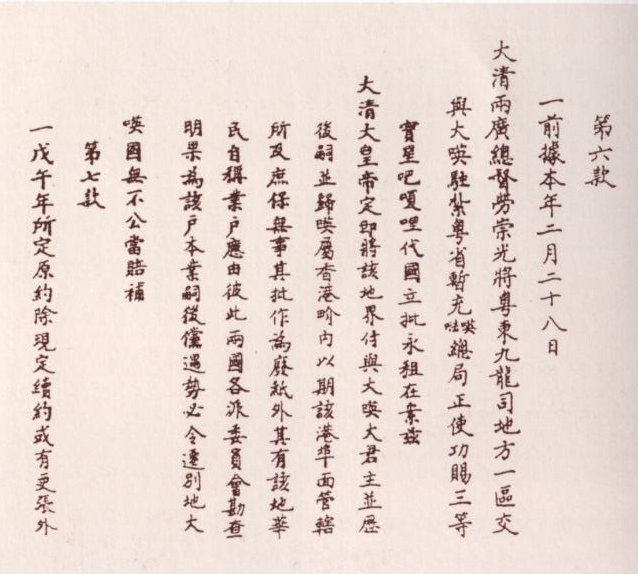 第六款
一前據本年二月二十八日
大清兩廣總督勞崇光將粵東九龍司地方一區交
與大𠸄駐紮粵省暫充𠸄㖔總局正使功賜三等
寶星吧嗄哩代國立批永租在案茲
大清大皇帝定即將該地界付與大𠸄大君主並歷
後嗣並歸𠸄屬香港界內以期該港埠面管轄
所及庶保無事其批作為廢紙外其有該地華
民自稱業戶應由彼此兩國各派委員會勘查
明果為該戶本業嗣後儻遇勢必令遷別地大
𠸄國無不公當賠補
第七款
一戊午年所定原約除現定續約或有更張外